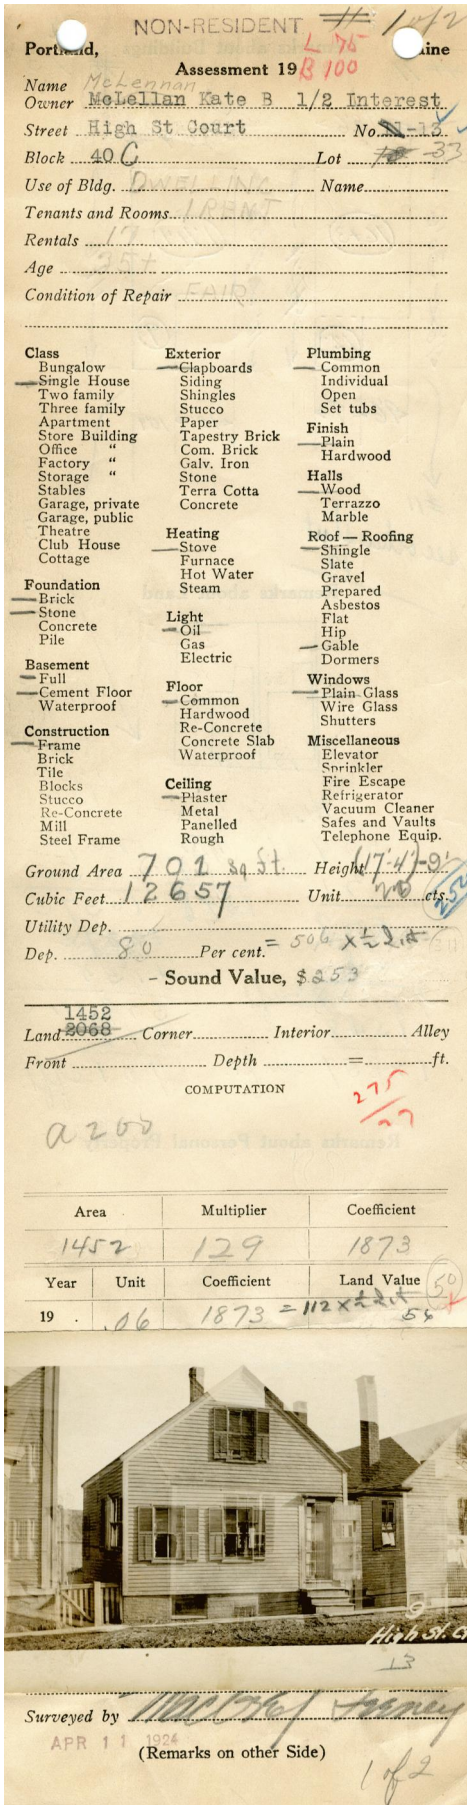 NON-RESIDENT # 1 of 2
Portland, Maine
L 75
Assessment 19 B 100
McLennan
Name
Owner McLellan Kate B 1/2 Interest
Street High St Court No. 11-13
Block 40 C Lot 33
Use of Bldg. DWELLING Name
Tenants and Rooms 1 RENT
Rentals 17
Age 35+
Condition of Repair FAIR
Class
Bungalow
Single House
Two family
Three family
Apartment
Store Building
Office "
Factory "
Storage "
Stables
Garage, private
Garage, public
Theatre
Club House
Cottage
Foundation
Brick
Stone
Concrete
Pile
Basement
Full
Cement Floor
Waterproof
Construction
Frame
Brick
Tile
Blocks
Stucco
Re-Concrete
Mill
Steel Frame
Exterior
Clapboards
Siding
Shingles
Stucco
Paper
Tapestry Brick
Com. Brick
Galv. Iron
Stone
Terra Cotta
Concrete
Heating
Stove
Furnace
Hot Water
Steam
Light
Oil
Gas
Electric
Floor
Common
Hardwood
Re-Concrete
Concrete Slab
Waterproof
Ceiling
Plaster
Metal
Panelled
Rough
Plumbing
Common
Individual
Open
Set tubs
Finish
Plain
Hardwood
Halls
Wood
Terrazzo
Marble
Roof — Roofing
Shingle
Slate
Gravel
Prepared
Asbestos
Flat
Hip
Gable
Dormers
Windows
Plain Glass
Wire Glass
Shutters
Miscellaneous
Elevator
Sprinkler
Fire Escape
Refrigerator
Vacuum Cleaner
Safes and Vaults
Telephone Equip.
Ground Area 701 sq ft. Height (17'-4')-9'
Cubic Feet 12657 Unit 20 cts. 252
Utility Dep.
Dep. 80 Per cent. = 506 x ½ Int
- Sound Value, $253
1452
Land 2068 Corner Interior Alley
Front Depth = ft.
COMPUTATION
275
27
a 200
Area Multiplier Coefficient
1452 129 1873
Year Unit Coefficient Land Value 50
19 . .06 1873 = 112 x ½ Int 56
High St. C
13
Surveyed by
APR 11 1924
(Remarks on other Side)
1 of 2